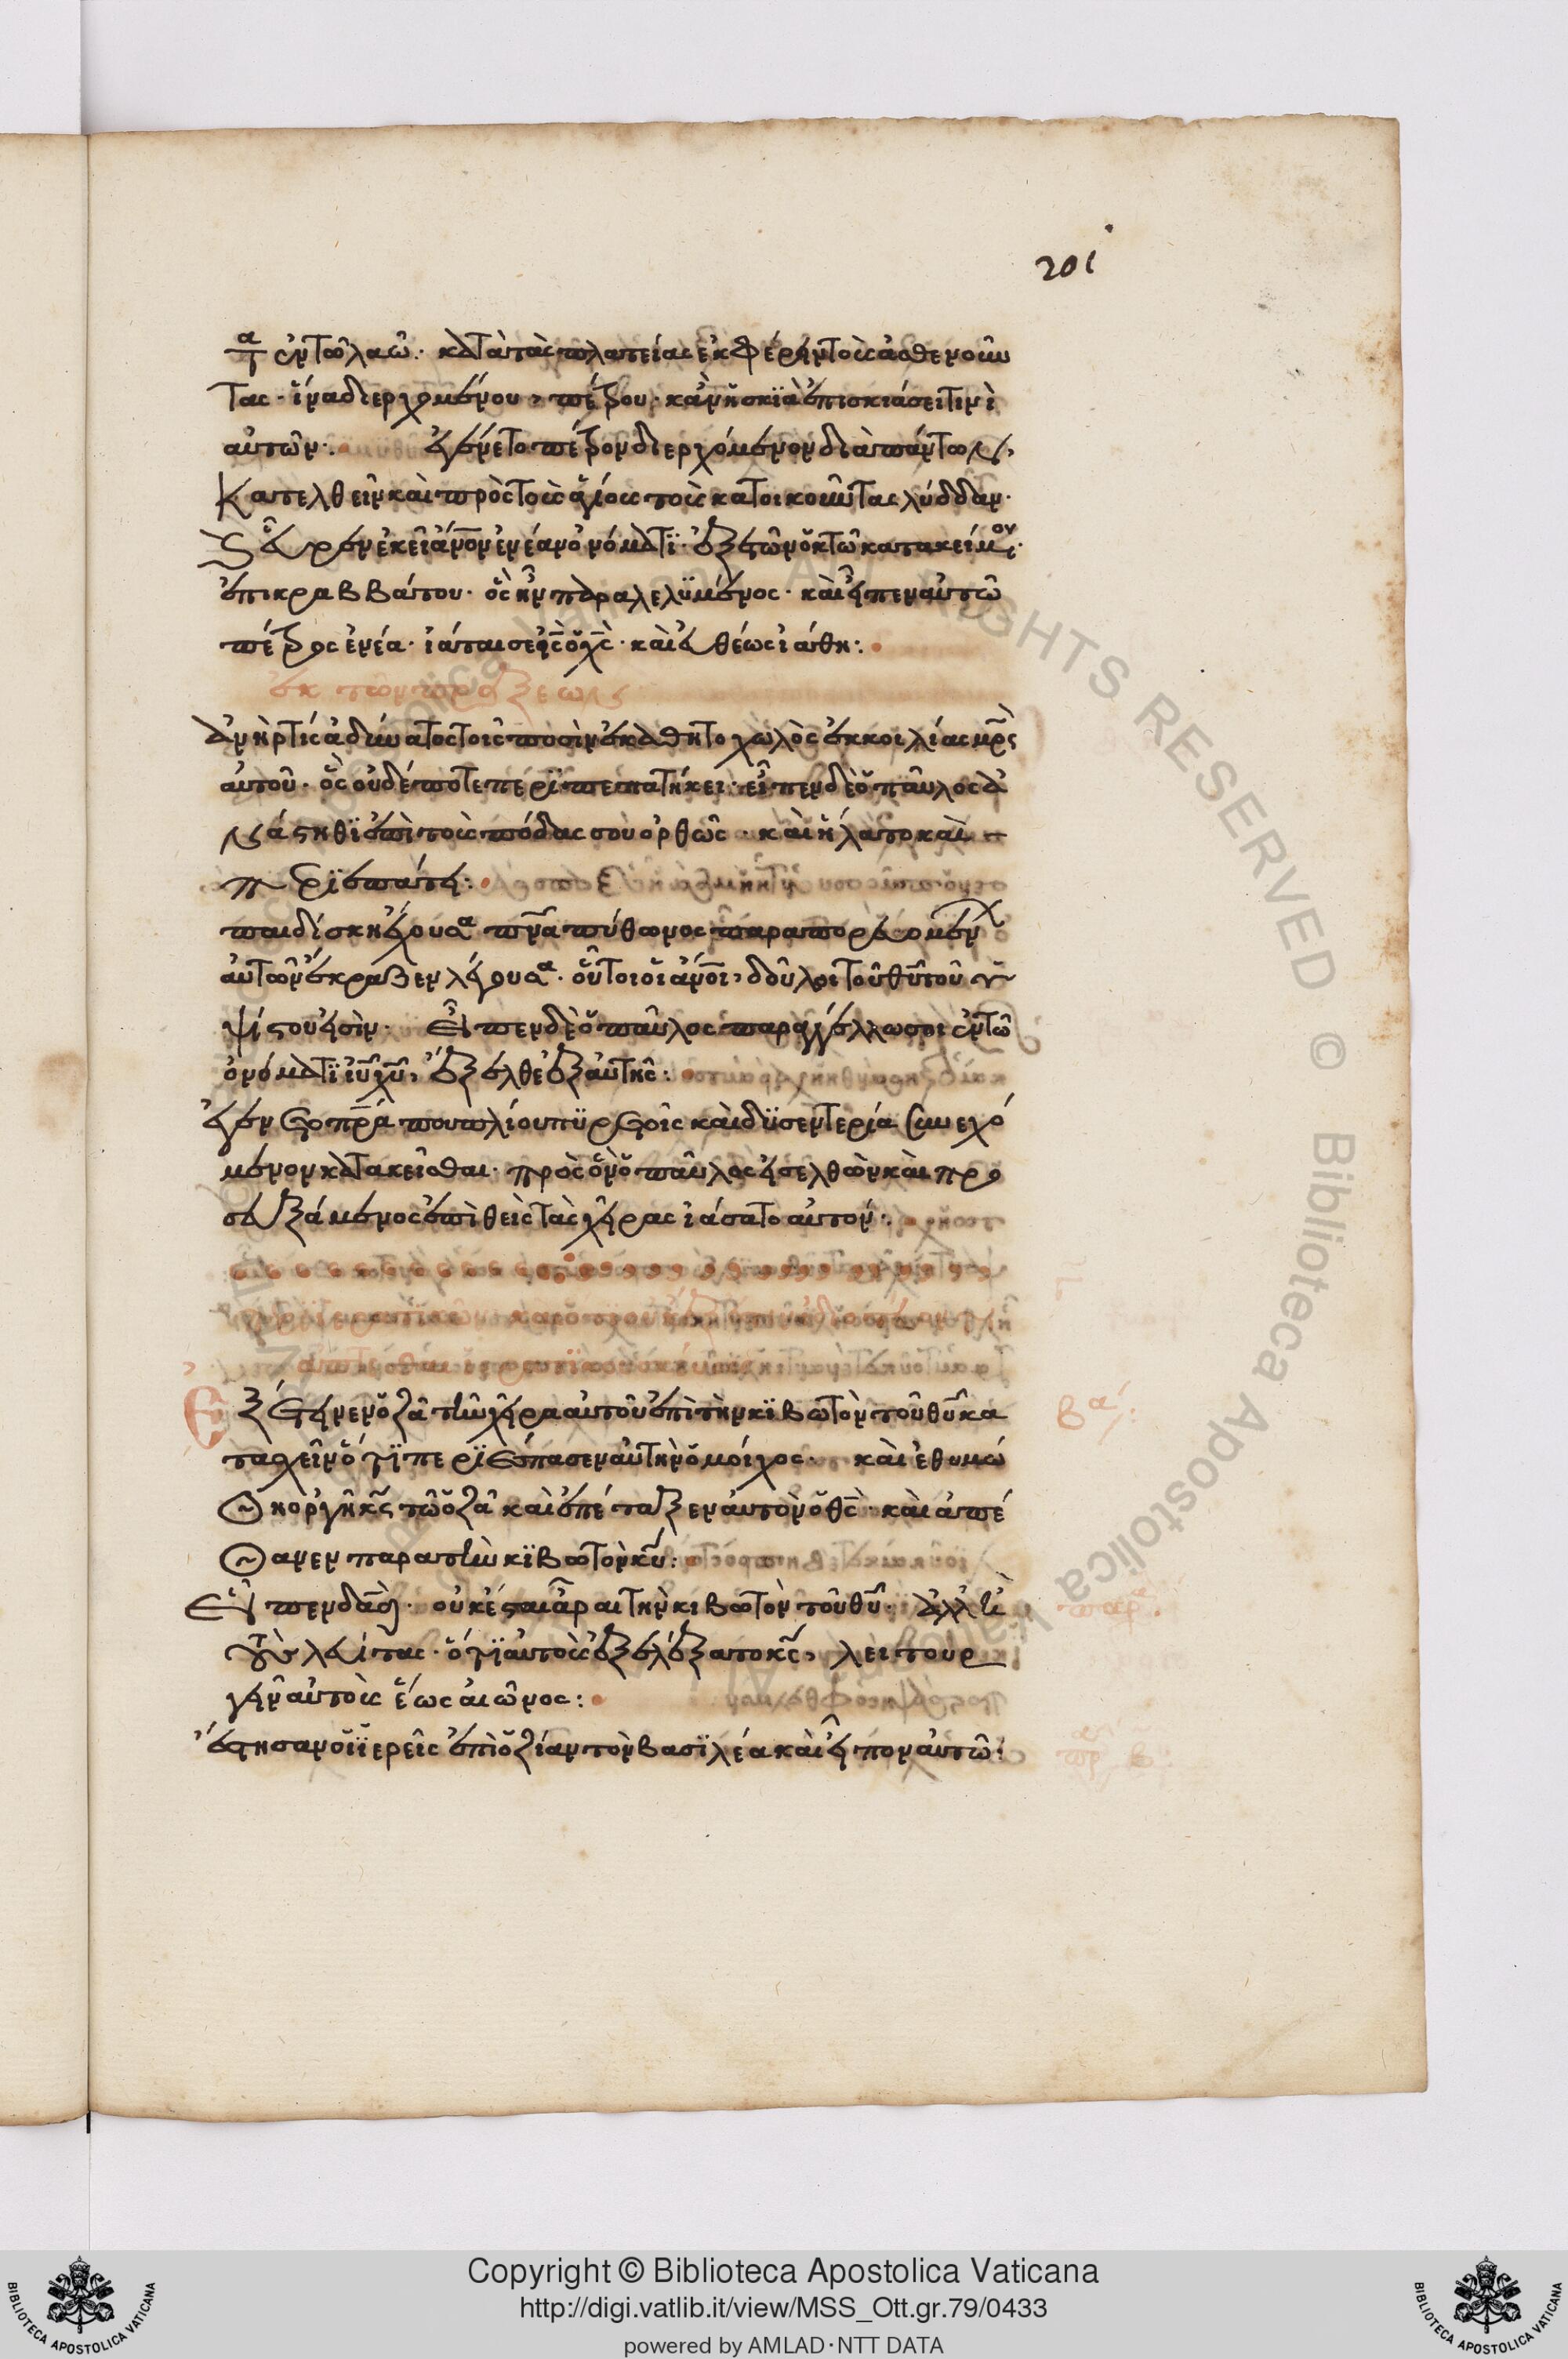 201
τα ἐν τῶ λαῶ· κατὰ τὰς πλατείας ἐκφέρειν τοὺς ἀσθενοῦν
τας· ἵνα διερχομένου, πέτρου· κἀν ἡ σκϊὰ ἐπισκιάσει τινὶ
αὐτῶν· ἐγένετο πέτρον διερχόμενον διὰ πάντων,
κατελθεῖν καὶ πρὸς τοὺς ἁγίους τοὺς κατοικοῦντας λύδδαν·
εὗρεν ἐκεῖ ἄνον ἐνέαν ὀνόματϊ· ἐξ ἐτῶν ὀκτῶ κατακείμενον·
ἐπι κραββάτου· ὃς ἦν παραλελϋμένος· καὶ εἶπεν αὐτῶ
πέτρος ἐνέα· ἰάται σε ις ὁ χς· καὶ εὐθέως ἰάθη:
ἐκ τῶν πράξεων
ἀνήρ τίς ἀδύνατος τοῖς ποσὶν ἐκάθητο χωλὸς ἐκ κοιλίας μρς
αὐτοῦ· ὃς οὐδέποτε περϊπεπατήκει· εἶπεν δὲ ὁ παῦλος ἀ
νάστηθϊ ἐπὶ τοὺς πόδας σου ὀρθῶς· καὶ ἥλατο καὶ
περϊεπάτει:
παιδίσκη ἔχουσα πνα πύθωνος παραπορευομένων
αὐτῶν ἔκραζεν λέγουσα· οὗτοι οἱ ἄνοι, δοῦλοι τοῦ θυ τοῦ ὑ
ψίστου εἰσὶν· εἶπεν δὲ ὁ παῦλος παραγγέλλω σοι ἐν τῶ
ὀνόματϊ ιυ χυ, ἔξελθε ἐξ αὐτῆς:
ἐγένετο πρα που πλίου πϋρετοῖς καὶ δϋσεντερία συνεχό
μενον κατακεῖσθαι· πρὸς ὃν ὁ παῦλος εἰσελθὼν καὶ προ
σευξάμενος ἐπὶθεὶς τὰς χεῖρας ἰάσατο αὐτον:
ἐξέτεινεν ὁ ζα τὴν χεῖρα αὐτοῦ ἐπὶ τὴν κϊβωτὸν τοῦ θυ κα
τασχεῖν ὅτϊ περϊέσπασεν αὐτὴν ὁ μόσχος· καὶ ἐθυμώ
θη ὀργὴ κυ τῶ ὀζα καὶ ἐπέταξεν αὐτὸν ὁ θς· καὶ ἀπέ
θανεν παρα τὴν κϊβωτὸν κυ:
βα
εἶπεν δαδ· οὐκ ἔσται ἆραι τὴν κιβωτὸν τοῦ θυ· ἀλλ' ἢ
τοὺς λευίτας· ὅτϊ αὐτοὺς ἐξελέξατο κς, λειτουρ
γεῖν αὐτοὺς ἕως αἰῶνος:
παρα
ἔστησαν οἱ ϊερεῖς ἐπὶ ὀζίαν τὸν βασϊλέα καὶ εἶπον αὐτῶ:
παρ β
Copyright © Biblioteca Apostolica Vaticana
http://digi.vatlib.it/view/MSS_Ott.gr.79/0433
powered by AMLAD·NTT DATA
BIBLIOTECA APOSTOLICA VATICANA
BIBLIOTECA APOSTOLICA VATICANA